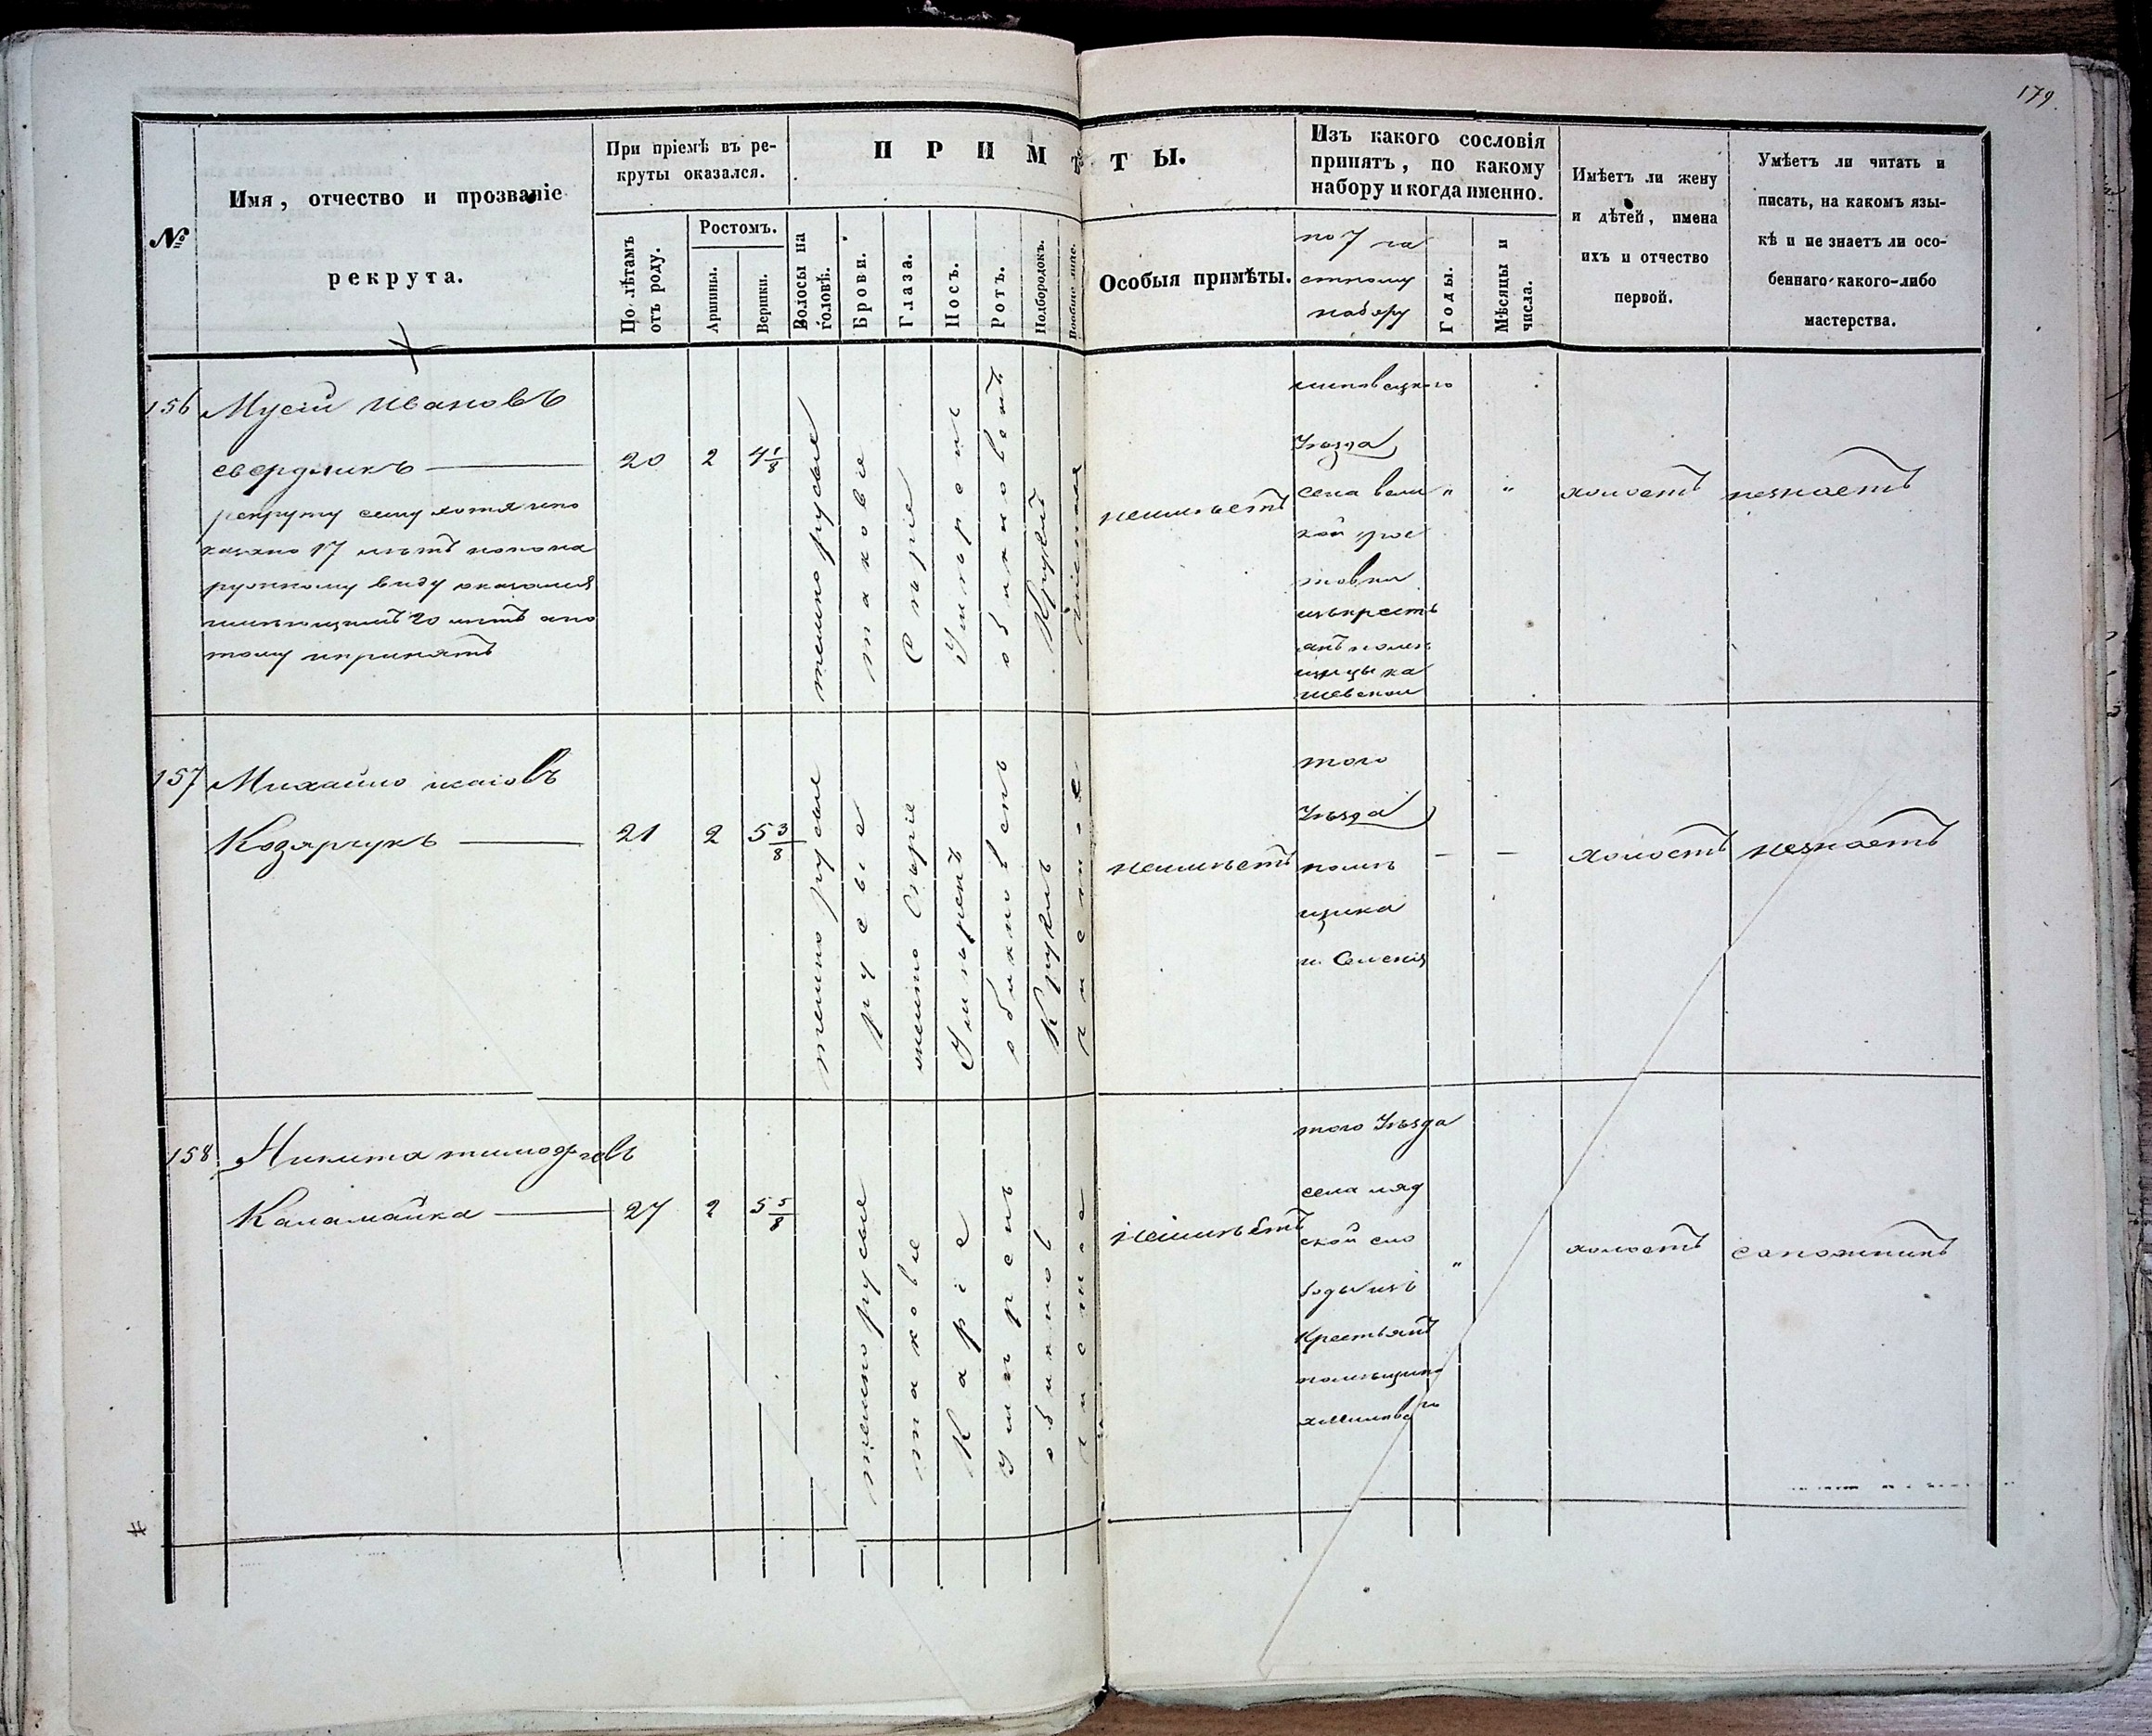 179.
№
Имя, отчество и прозваніе
рекрута.
При пріемѣ въ ре-
круты оказался.
По лѣтамъ
отъ роду.
Ростомъ.
Аршины.
Вершки.
П Р И М Ѣ Т Ы.
Волосы на
головѣ.
Брови.
Глаза.
Носъ.
Ротъ.
Подбородокъ.
Вообще лице.
Особыя примѣты.
Изъ какого сословія
принятъ, по какому
набору и когда именно.
по 7 ча
стному
набору
Годы.
Мѣсяцы и
числа.
Имѣетъ ли жену
и дѣтей, имена
ихъ и отчество
первой.
Умѣетъ ли читать и
писать, на какомъ язы-
кѣ и не знаетъ ли осо-
беннаго какого-либо
мастерства.
156
Мусій Ивановъ
свердликъ
рекруту сему хотя
17 лѣтъ но по на
ружному виду оказался
имѣющимъ 20 лѣтъ а по
тому и принятъ
20
2
4 1/8
темно русые
таковіе
Сѣріе
Умѣренъ
обикновенъ
Круглъ
чистое
неимѣетъ
Уѣзда
села вели
кой
изъ крестъ
янъ помѣ
щицы
"
"
холостъ
незнаетъ
157
Михайло
Козярчукъ
21
2
5 3/8
темно русые
русые
Сѣріе
Умѣренъ
обикновенъ
Круглъ
чистое
неимѣетъ
того
Уѣзда
помѣ
щика
холостъ
незнаетъ
158
Никита тимофѣевъ
Каламайка
27
2
5 5/8
темно русые
таковіе
Каріе
Умѣренъ
обикнов
чистое
неимѣетъ
того Уѣзда
села ляд
ской сло
боды изъ
Крестьянъ
помѣщика
"
холостъ
сапожникъ